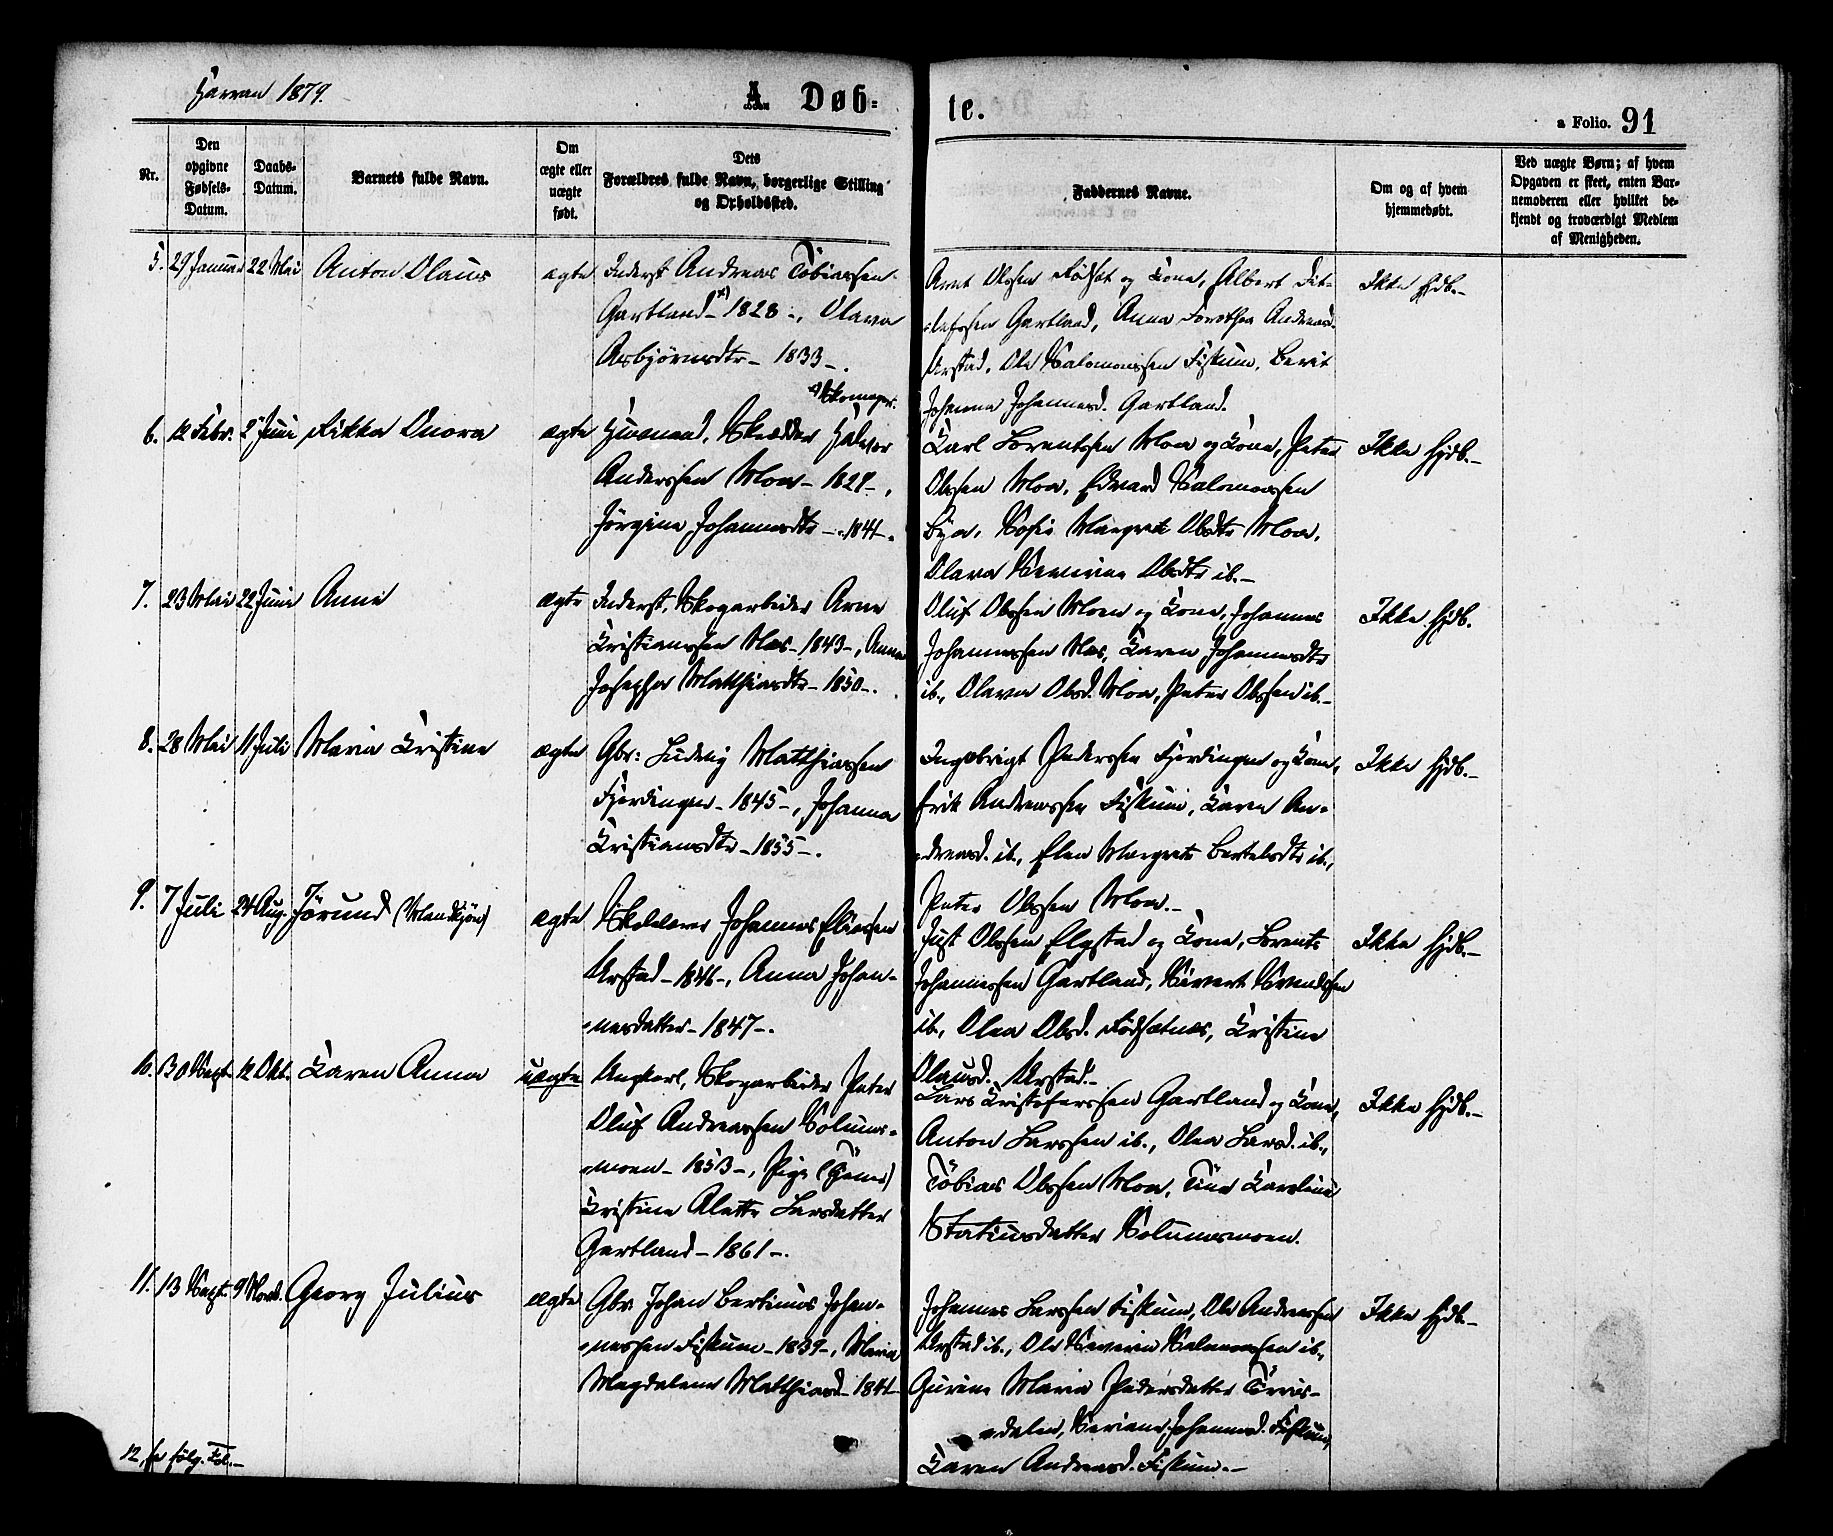 Harran 1879.
A. Døb-
te.
a Folio. 91
Nr.
Den opgivne Fødsels-Datum.
Daabs-Datum.
Barnets fulde Navn.
Om ægte eller uægte født.
Dets Forældres fulde Navn, borgerlige Stilling og Opholdssted.
Faddernes Navne.
Om og af hvem hjemmedøbt.
Ved uægte Børn; af hvem Opgaven er skeet, enten Barnemoderen eller hvilket bekjendt og troværdigt Medlem af Menigheden.
5. 29 Januar 22 Mai Anton Olaus ægte Inderst Andreas Tobiassen
Gartland x) 1828 -, Olava
Asbjörnsdtr - 1833 -.
x) Skomager.
Arnt Olssen Rödset og Kone, Albert Det-
lefssen Gartland, Anna Dorothea Andreasd.
Urstad, Ole Salomonssen Fiskum, Berit
Johanna Johannesd. Gartland.
Ikke hjdb.-
6. 12 Febr. 2 Juni Rikka Dnora ægte Huusmand, Skrædder Halvor
Anderssen Moa - 1829 -,
Jörgine Johannesdtr - 1841 -.
Karl Lorentssen Moa og Kone, Peter
Olssen Moa, Edvard Salomonssen
Bya, Sofie Margret Olsdtr Moa,
Olava Severine Olsdtr ib.-
Ikke hjdb.-
7. 23 Mai 22 Juni Anne ægte Inderst, Skogarbeider Arne
Kristianssen Mos - 1843 -, Anna
Josepha Matthiasdtr - 1850 -.
Oluf Olssen Moen og Kone, Johannes
Johannessen Mos, Karen Johannesdtr
ib., Olava Olsd. Moa, Peter Olssen ib.-
Ikke hjdb.
8. 28 Mai 11 Juli Maria Kristine ægte Gbr: Ludvig Matthiassen
Fjerdingen - 1845 -, Johanna
Kristiansdtr - 1855 -.
Ingebrigt Pederssen Fjerdingen og Kone,
Erik Andreassen Fiskum, Karen An-
dreasd. ib., Elen Margrete Bertelsdtr ib.,
Peter Olssen Moa.-
Ikke hjdb.-
9. 7 Juli 24 Aug. Jörund (Mandkjön) ægte Skolelærer Johannes Eliassen
Urstad - 1846 -, Anna Johan-
nesdatter - 1847 -.
Just Olssen Elgstad og Kone, Lorents
Johannessen Gartland, Sivert Svendssen
ib., Olea Olsd. Rödsætnes, Kristine
Olausd. Urstad.-
Ikke hjdb.-
10. 30 Sept. 12 Okt. Karen Anna uægte Ungkarl, Skogarbeider Peter
Oluf Andreassen Solums-
moen - 1853 -, Pige (Tjener)
Kristine Alette Larsdatter
Gartland - 1861 -.
Lars Kristoferssen Gartland og Kone,
Anton Larssen ib., Olea Larsd. ib.,
Tobias Olssen Moa, Tina Karoline
Statiusdatter Solumsmoen.
Ikke hjdb.-
11. 13 Sept. 9 Novb. Georg Julius ægte Gbr. Johan Bertinus Johan-
nessen Fiskum - 1839 -, Maria
Magdalena Matthiasd. - 1841 -
Johannes Larssen Fiskum, Ole Andreassen
Urstad ib., Ole Severin Salamonssen ib.,
Gurine Maria Pedersdatter
dalen, Seriane Johannesd. Fiskum,
Karen Andreasd. Fiskum.-
Ikke hjdb.-
12, se følg. Fol.-